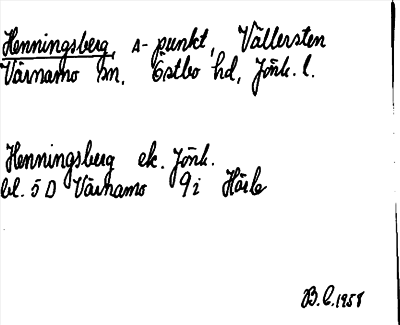 Henningsberg, s-punkt, Vällersten
Värnamo sn, Östbo hd, Jönk. l.
Henningsberg ek. Jönk.
bl. 5 D Värnamo 9i Hörle
B. C. 1958